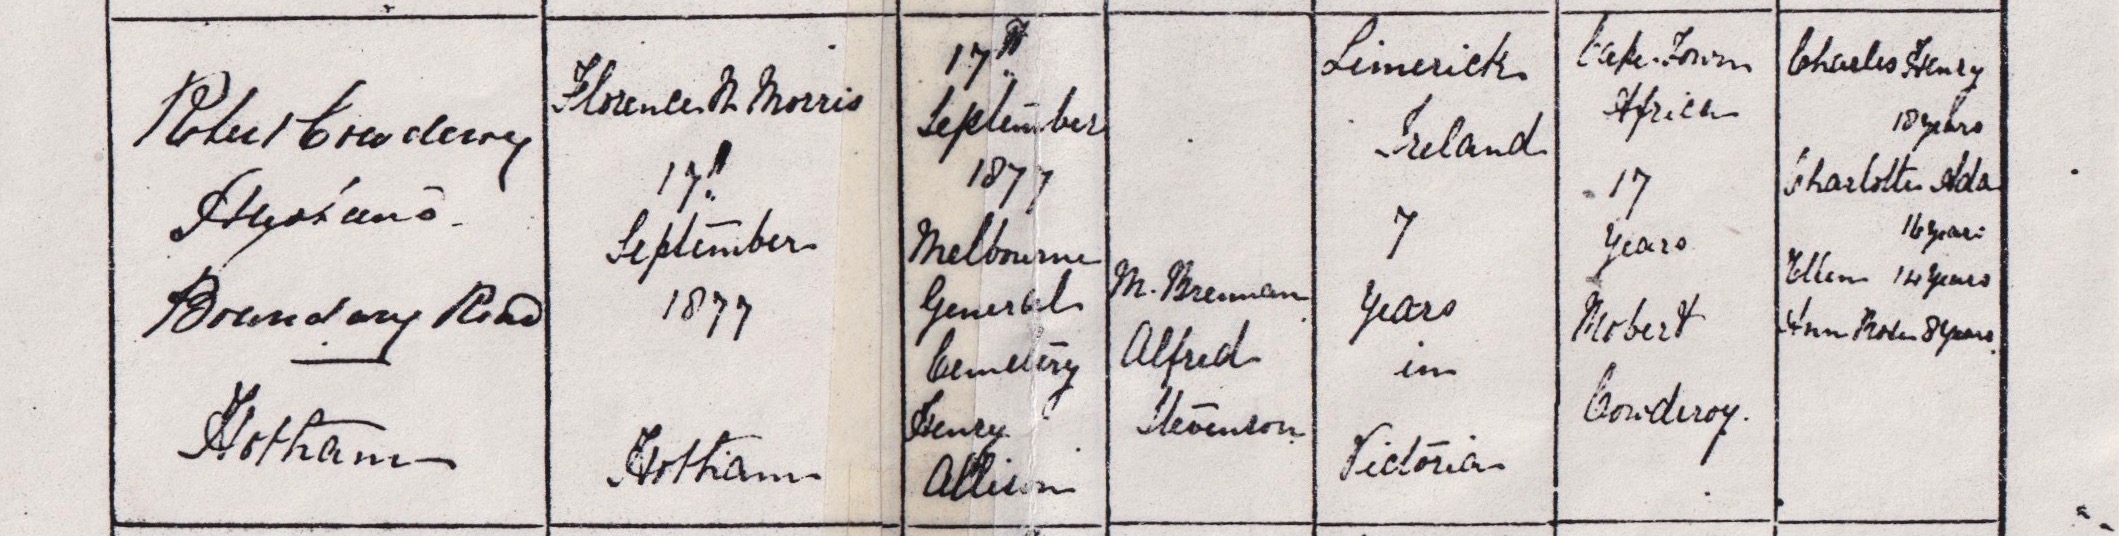 Robert Cowderoy
Husband
Boundary Road
Hotham
Florence M Morris
17th
September
1877
Hotham
17th
September
1877
Melbourne
General
Cemetery
Henry
Allison
M. Brennan
Alfred
Stevenson
Limerick
Ireland
7
Years
in
Victoria
Cape Town
Africa
17
Years
Robert
Cowderoy.
Charles Henry
18 years
Charlotte Ada
16 years
Ellen 14 years
Ann 8 years